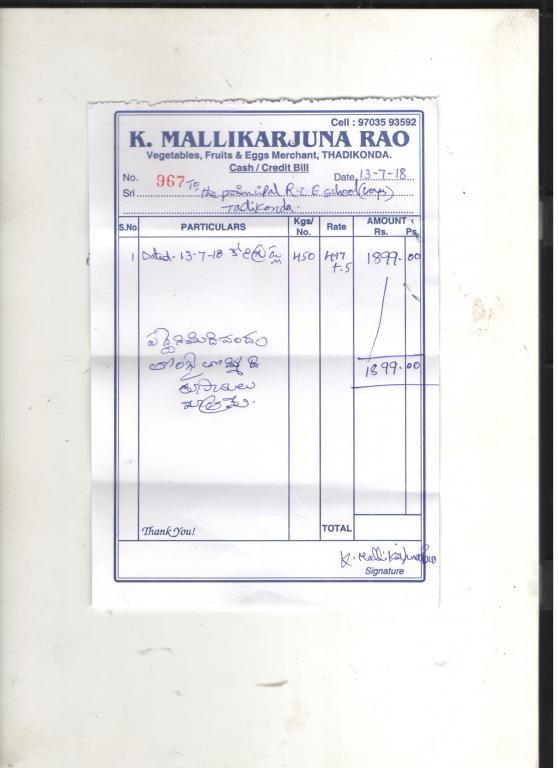 Cell : 97035 93592
K. MALLIKARJUNA RAO
Vegetables, Fruits & Eggs Merchant, THADIKONDA.
Cash / Credit Bill
No. 967 Date 13-7-18
Sri To the principal R.C.E School (Boys)
Tadikonda.
S.No. PARTICULARS Kgs/ No. Rate AMOUNT Rs. Ps.
1 Dated- 13-7-18 450 417 1899.00
+.5
1899.00
రూపాయలు
మాత్రమే.
Thank You! TOTAL
K. Mallikarjuna Rao
Signature